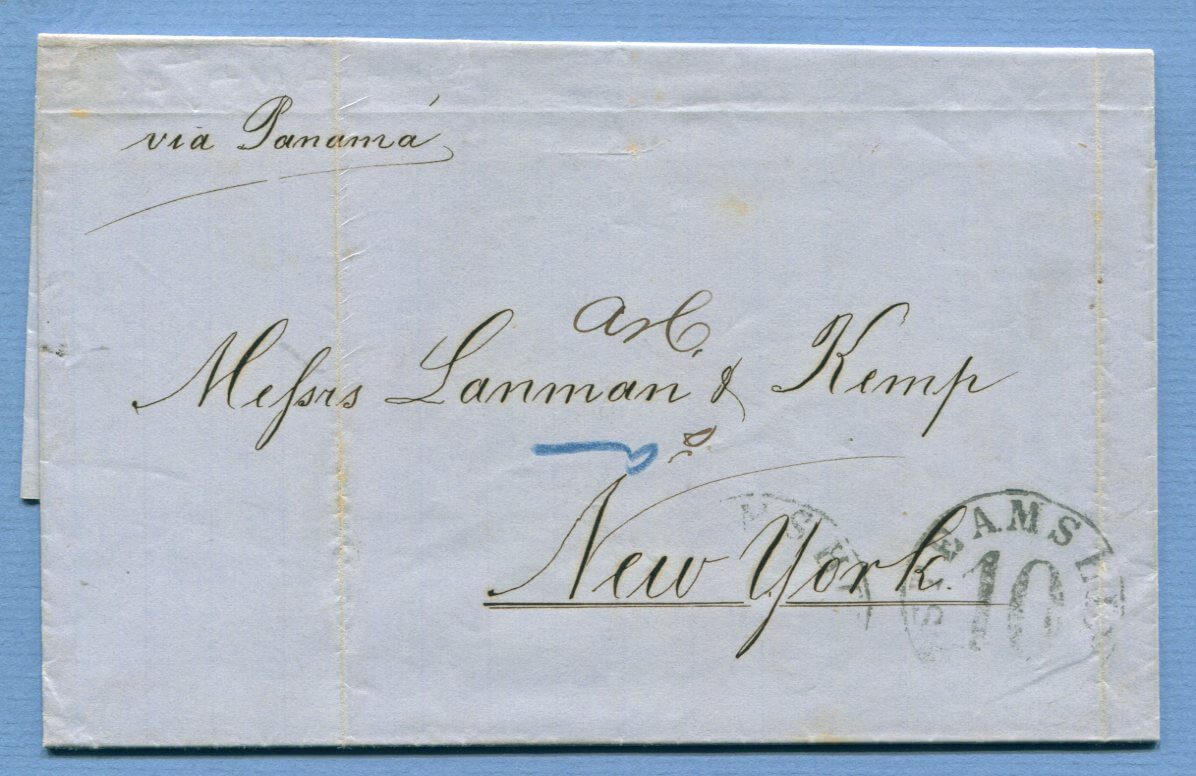 via Panamá
Messrs Lanman & Kemp
New York
STEAMSHIP
10